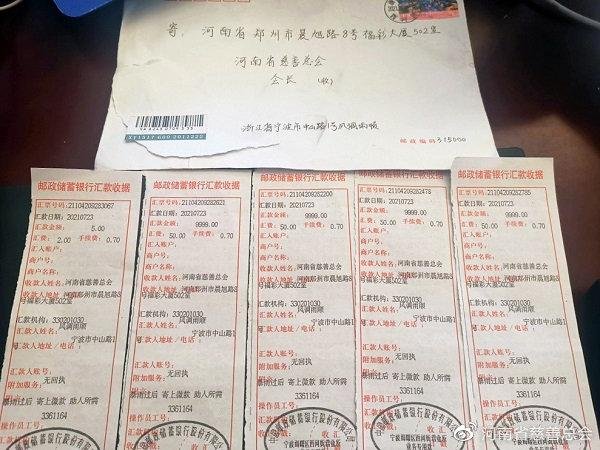 寄: 河南省郑州市晨旭路8号福彩大厦502室
河南省慈善总会
会长 (收)
XT1517 600 2011222
浙江省宁波市中山路1号风调雨顺
邮政编码 315000
邮政储蓄银行汇款收据
汇票号码:21104209283067
汇款日期:20210723
汇款金额: 5.00
汇费: 2.00 手续费: 0.70
汇入账户:
商户号:
商户名称:
收款人姓名:河南省慈善总会
收款人地址:河南郑州市晨旭路8
号福彩大厦502室
汇款机构:330201030
汇款人姓名:风调雨顺
汇款人地址/电话:宁波市中山路1
号
汇款人账号:
附加服务:无回执
暴雨过后 寄上微款 助人所需
操作员号:3361164
邮政储蓄银行汇款收据
汇票号码:21104209282621
汇款日期:20210723
汇款金额: 9999.00
汇费: 50.00 手续费: 0.70
汇入账户:
商户号:
商户名称:
收款人姓名:河南省慈善总会
收款人地址:河南郑州市晨旭路8
号福彩大厦502室
汇款机构:330201030
汇款人姓名:风调雨顺
汇款人地址/电话:宁波市中山路1
号
汇款人账号:
附加服务:无回执
暴雨过后 寄上微款 助人所需
操作员号:3361164
邮政储蓄银行汇款收据
汇票号码:21104209282200
汇款日期:20210723
汇款金额: 9999.00
汇费: 50.00 手续费: 0.70
汇入账户:
商户号:
商户名称:
收款人姓名:河南省慈善总会
收款人地址:河南郑州市晨旭路8
号福彩大厦502室
汇款机构:330201030
汇款人姓名:风调雨顺
汇款人地址/电话:宁波市中山路1
号
汇款人账号:
附加服务:无回执
暴雨过后 寄上微款 助人所需
操作员号:3361164
邮政储蓄银行汇款收据
汇票号码:21104209282478
汇款日期:20210723
汇款金额: 9999.00
汇费: 50.00 手续费: 0.70
汇入账户:
商户号:
商户名称:
收款人姓名:河南省慈善总会
收款人地址:河南郑州市晨旭路8
号福彩大厦502室
汇款机构:330201030
汇款人姓名:风调雨顺
汇款人地址/电话:宁波市中山路1
号
汇款人账号:
附加服务:无回执
暴雨过后 寄上微款 助人所需
操作员号:3361164
邮政储蓄银行汇款收据
汇票号码:21104209282785
汇款日期:20210723
汇款金额: 9999.00
汇费: 50.00 手续费: 0.70
汇入账户:
商户号:
商户名称:
收款人姓名:河南省慈善总会
收款人地址:河南郑州市晨旭路8
号福彩大厦502室
汇款机构:330201030
汇款人姓名:风调雨顺
汇款人地址/电话:宁波市中山路1
号
汇款人账号:
附加服务:无回执
暴雨过后 寄上微款 助人所需
操作员号:3361164
@河南省慈善总会